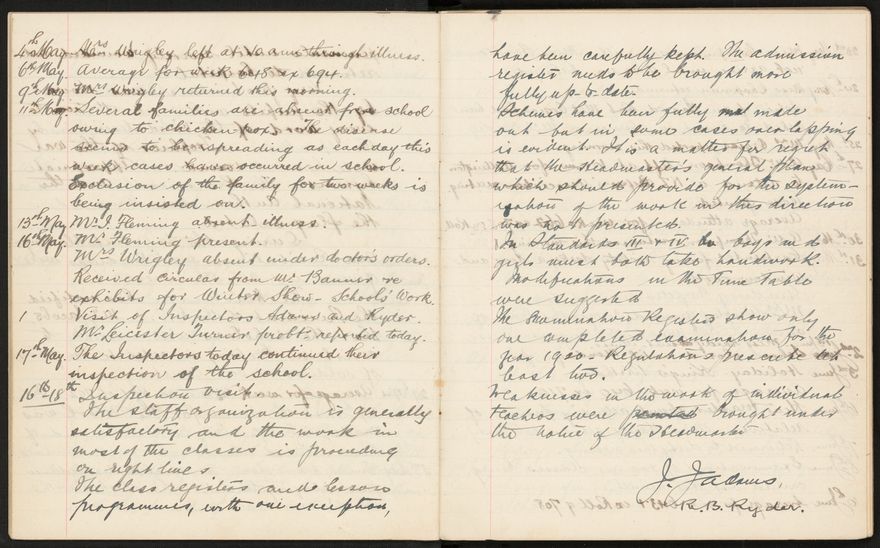 4th May. Mrs Wrigley left at 10 a.m. through illness.
6th May. Average for week 648 ex 694.
9th May. Mrs Wrigley returned this morning.
11th May. Several families are absent from school
owing to chicken pox. The disease
seems to be spreading as each day this
week cases have occurred in school.
Exclusion of the family for two weeks is
being insisted on.
13th May Mr. I. Fleming absent illness.
16th May. Mr. Fleming present.
Mrs Wrigley absent under doctor's orders.
Received circular from Mr Banner re
exhibits for Winter Show - Schools' Work.
1 Visit of Inspectors Adams and Ryder.
Mr. Leicester Turner probr. reported today.
17th May. The Inspectors today continued their
inspection of the school.
16th-18th Inspection visit
The staff organization is generally
satisfactory and the work in
most of the classes is proceeding
on right lines.
The class registers and lesson
programmes, with one exception,
have been carefully kept. The admission
register needs to be brought more
fully up-to date.
Schemes have been fully made
out but in some cases overlapping
is evident. It is a matter for regret
that the Headmaster's general plan
which should provide for the system-
ization of the work in this direction
was not presented.
In Standards III & IV boys and
girls must both take handwork.
Modifications in the Time Table
were suggested
The Examination Registers show only
one completed examination for the
year 19 Regulations prescribe at
least two.
Weaknesses in the work of individual
teachers were brought under
the notice of the Headmaster
J. J. Adams,
R. B. Ryder.